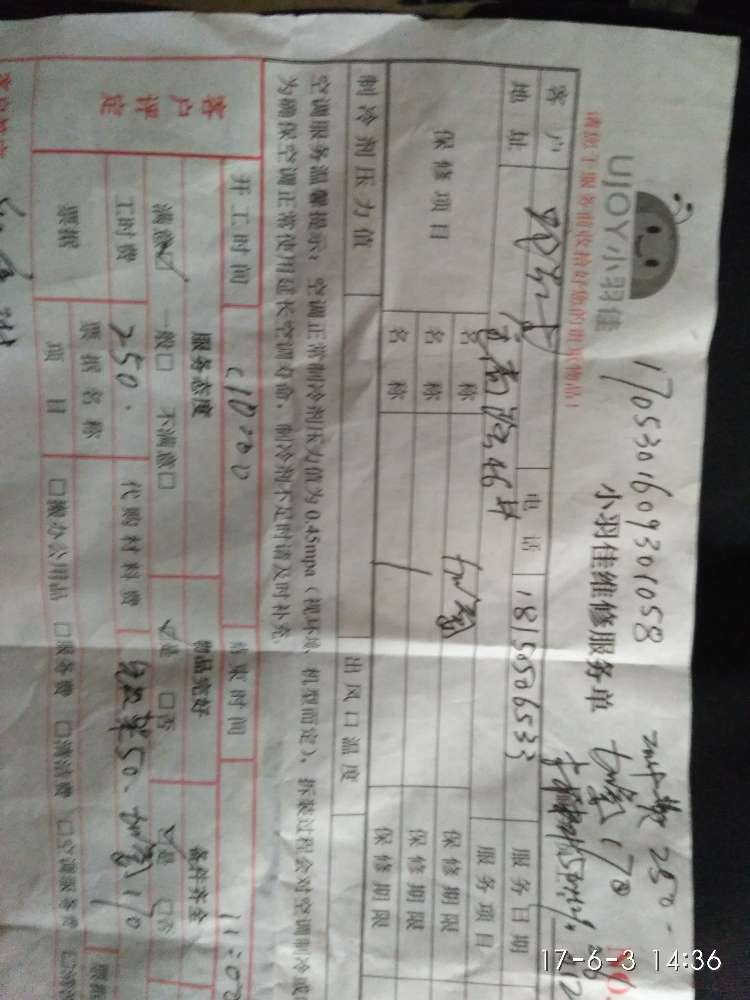 请您于服务前收拾好您的贵重物品！
UJOY小羽佳
1705301609301058
小羽佳维修服务单
250
加氟170
客户
地址
46号
电话
18150506533
服务日期
服务项目
保修项目
名称
加氟
保修期限
名称
保修期限
名称
保修期限
制冷剂压力值
出风口温度
空调服务温馨提示：空调正常制冷剂压力值为0.45mpa（视环境、机型而定），拆装过程会对空调制冷或
为确保空调正常使用延长空调寿命，制冷剂不足时请及时补充。
客户评定
开工时间
10:00
结束时间
11:00
服务态度
物品完好
备件齐全
满意☑ 一般□ 不满意□
☑是 □否
☑是 □否
工时费
250.
代购材料费
50、加氟170
票据
票据名称
项目
□搬办公用品 □服务费 □清洁费 □空调服务费
票据
17-6-3 14:36